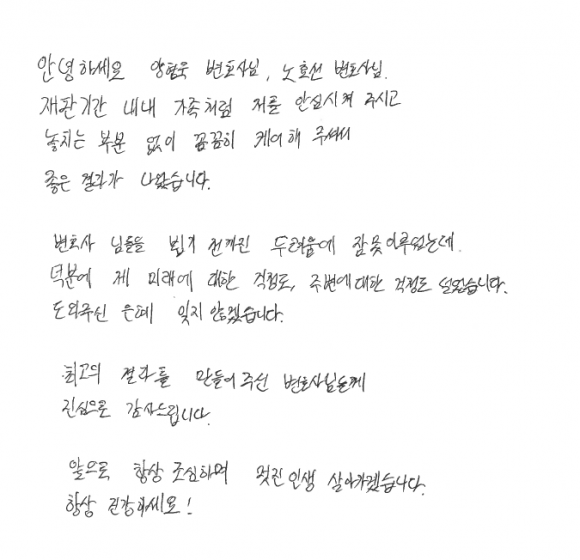 안녕하세요 양형욱 변호사님, 노호선 변호사님.
재판기간 내내 가족처럼 저를 안심시켜 주시고
놓치는 부분 없이 꼼꼼히 케어해 주셔서
좋은 결과가 나왔습니다.
변호사 님들을 뵙기 전까진 두려움에 잠못이루었는데.
덕분에 제 미래에 대한 걱정도, 주변에대한 걱정도 덜었습니다.
도와주신 은혜 잊지 않겠습니다.
최고의 결과를 만들어주신 변호사님들께
진심으로 감사드립니다.
앞으로 항상 조심하며 멋진인생 살아가겠습니다.
항상 건강하세요!